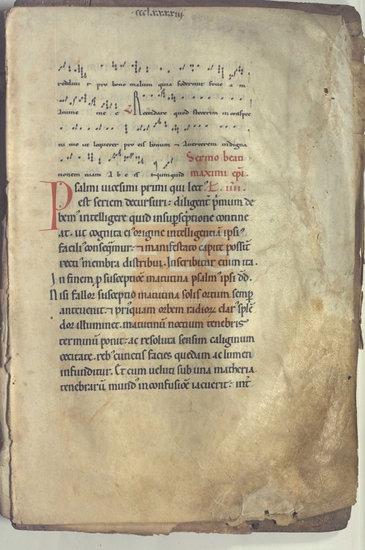 ccclxxxxiii
reddunt pro bono malum quia foderunt foueam
anime me e Recordare quod steterim in conspec
tu tuo ut loquerer pro eis bonum & auerterem indigna
tionem tuam ab eis Sermo beati
maximi epi
Psalmi uicesimi primi qui lect L. iiii.
est seriem decursuri: diligent primum de
bem intelligere quid in susceptione contine
at. ut cognita ei origine intelligentia ipsi
facili consequamur. manifestato capite possit
recte membra distribui. Inscribitur enim ita.
In finem p susceptioe matutina psalm ipsi dd.
Nisi fallor susceptio matutina solis ortum semp
anteuenit. priusquam orbem radiorum clar splen
dor assummet. matutinum noctium tenebris
terminum ponit: ac resoluta sensim caliginum
cecitate. reb cunctis facies quedam ac lumen
infunditur. Et cum ueluti sub una materia
tenebrarum mundus in confusione iacuerit: int